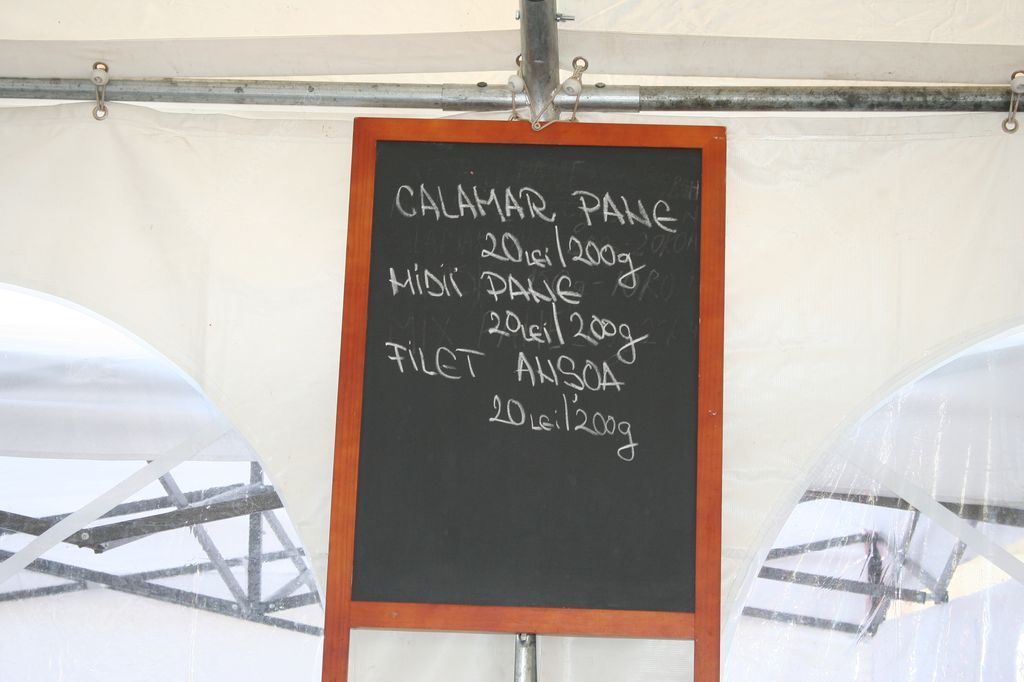 CALAMAR PANE
20 Lei/200g
MiDii PANE
20 Lei/200g
FiLET ANSOA
20 Lei/200g